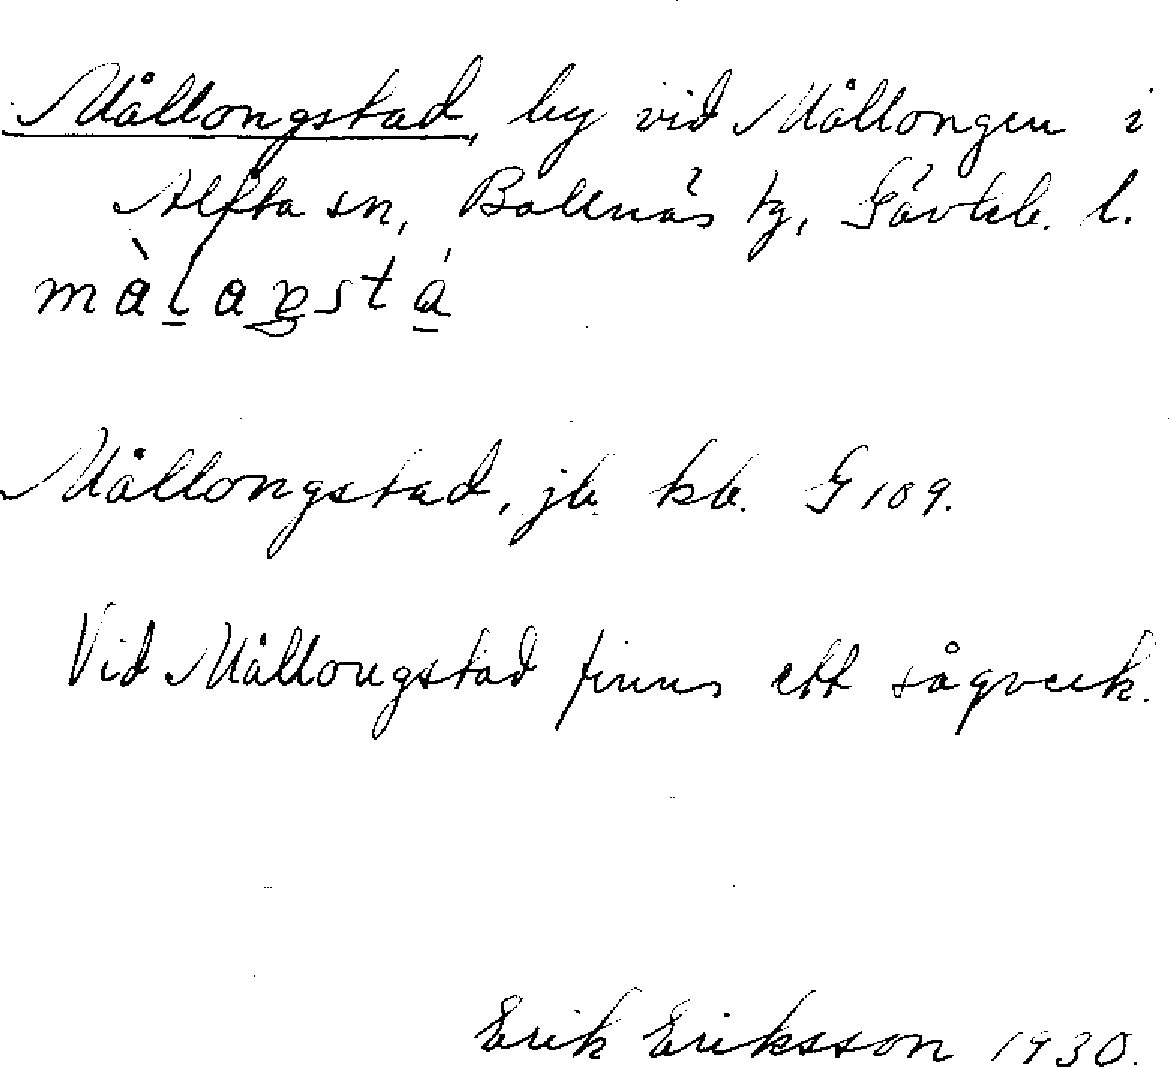 Mållongstad, by vid Mållongen i
Alfta sn, Bollnäs tg, Gävleb. l.
màl̲aŋstá̲
Mållongstad, jb. kb. G 109.
Vid Mållongstad finns ett sågverk.
Erik Eriksson 1930.